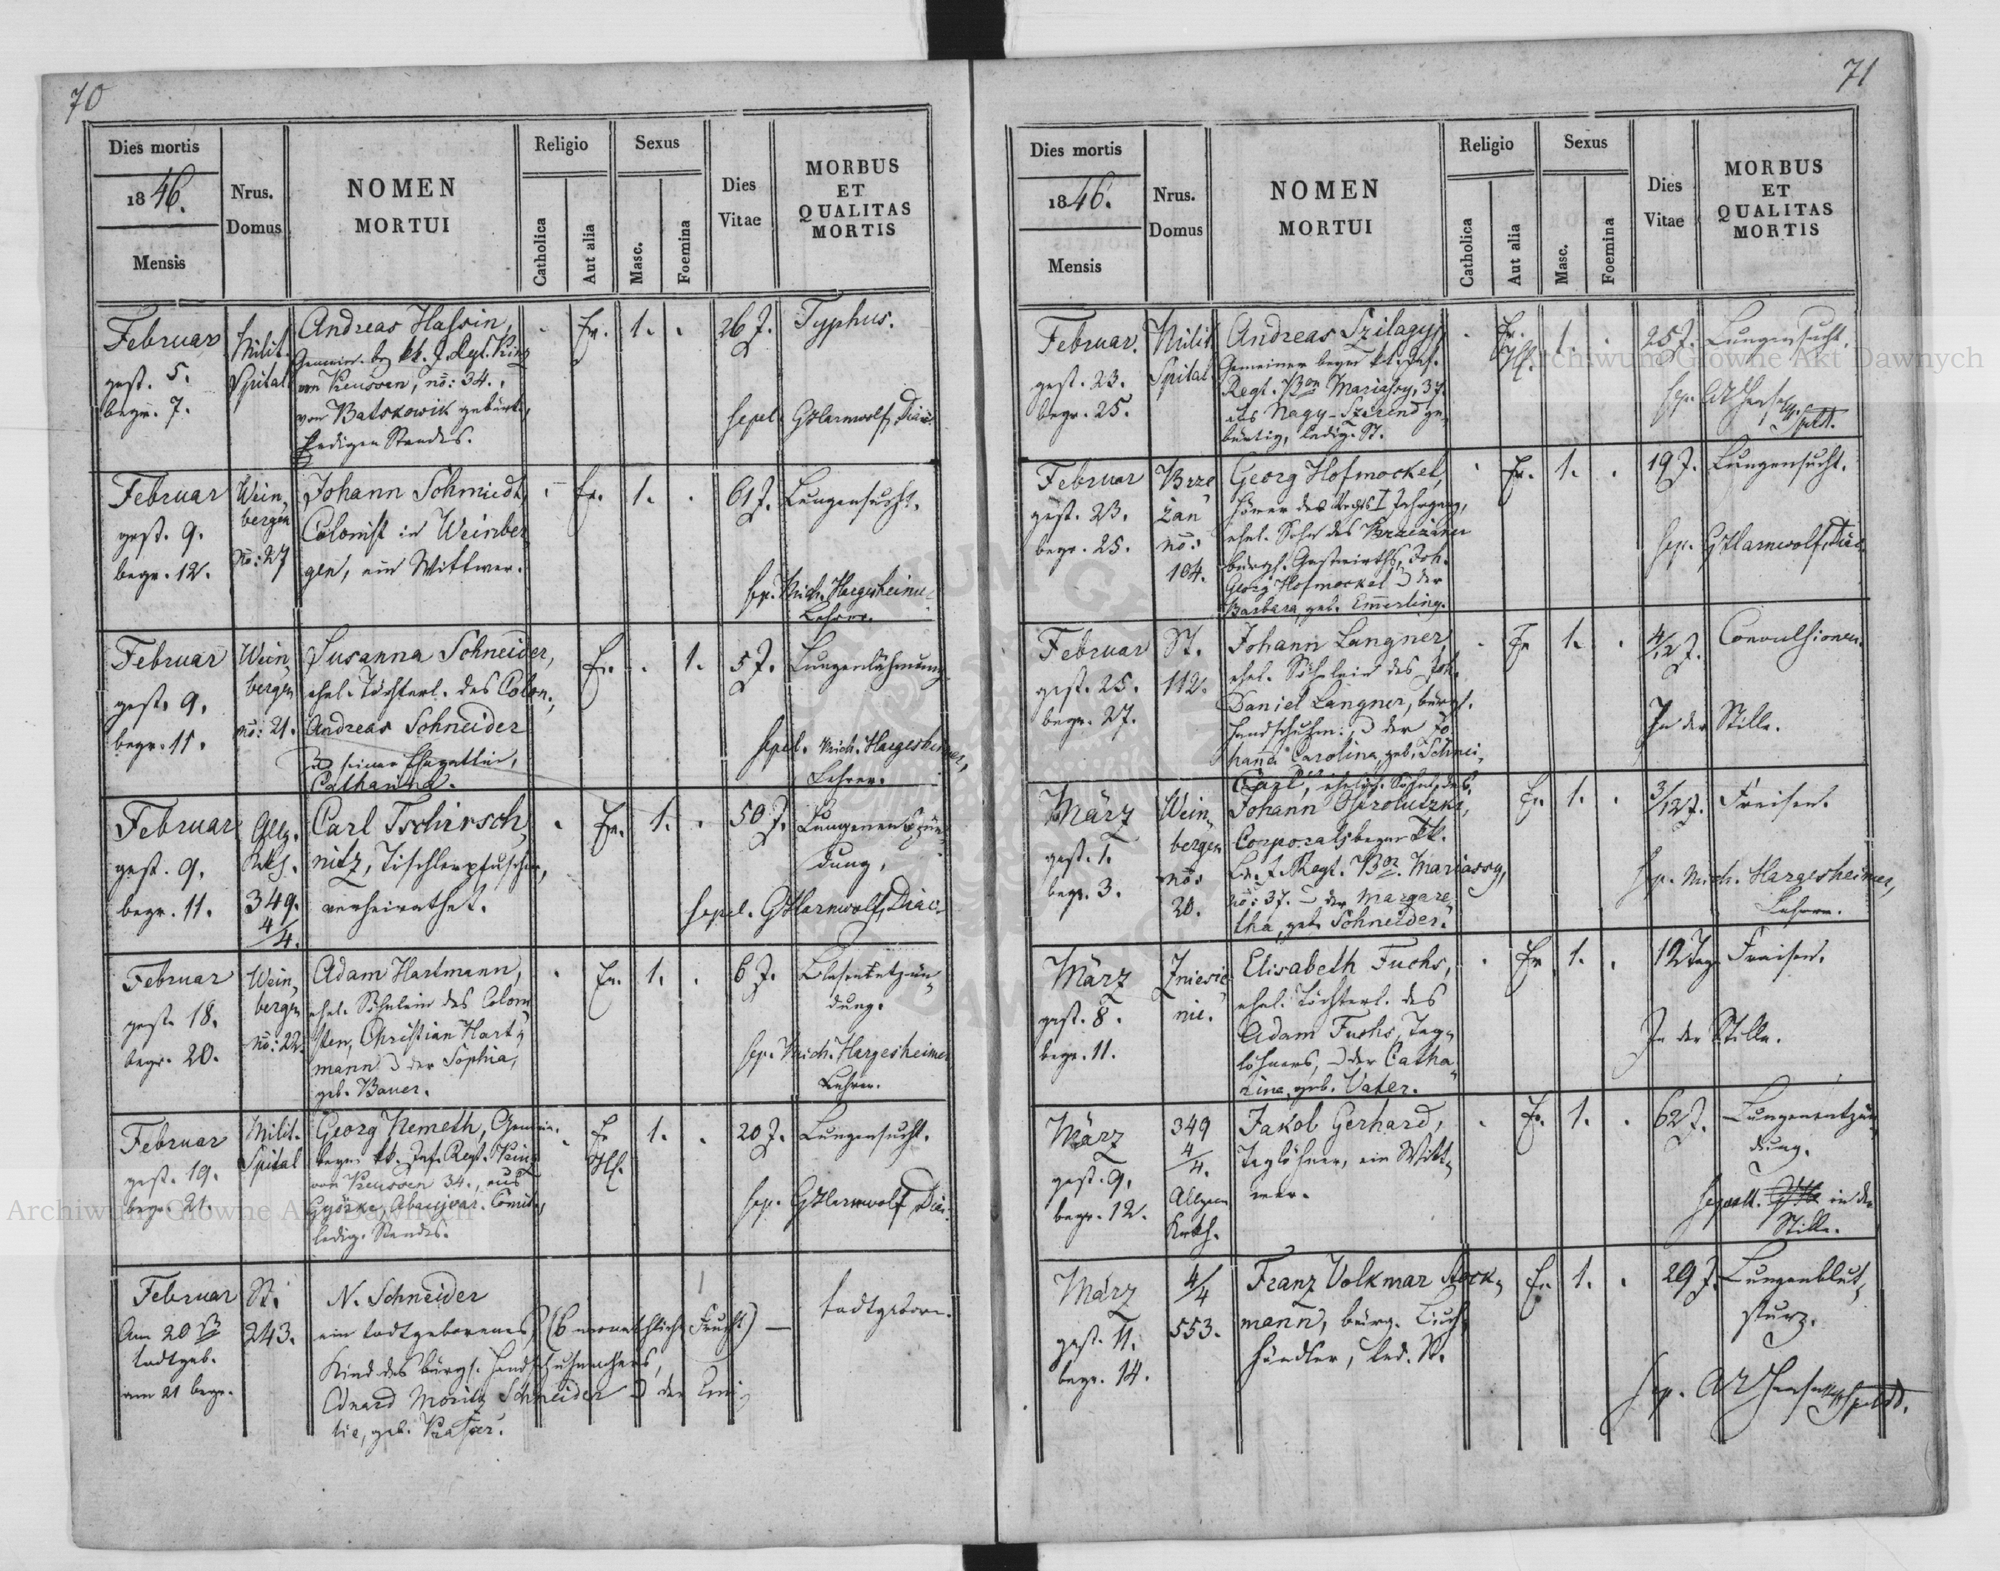 70
Dies mortis
1846.
Mensis
Nrus.
Domus
NOMEN
MORTUI
Religio
Catholica
Aut alia
Sexus
Masc.
Foemina
Dies
Vitae
MORBUS
ET
QUALITAS
MORTIS
Februar
gest. 5.
begr. 7.
Milit.
Spital
Andreas Hassin,
Gemeiner bey kk. J. Regt. Prinz
von Preussen, no: 34.,
von Batskowik gebürt.,
ledigen Standes.
Ev. 1. 26 J. Typhus.
sepel. GHarnwolf, Diac.
Februar
gest. 9.
begr. 12.
Wein,
bergen
no: 27
Johann Schmiedt,
Colonist in Weinber,
gen, ein Wittwer.
Ev. 1. 61 J. Lungensucht.
sep. Mich. Hargesheimer
Lehrer.
Februar
gest. 9.
begr. 11.
Wein,
bergen
no: 21.
Susanna Schneider,
ehel. Töchterl. des Colon.,
Andreas Schneider
u. seiner Ehegattin,
Catharina.
Ev. 1. 5 J. Lungenlähmung
sepel. Mich. Hargesheimer,
Lehrer.
Februar
gest. 9.
begr. 11.
Allg.
Krkh.
349.
4/4.
Carl Tschirsch,
nitz, Tischlerpfuscher,
verheirathet.
Ev. 1. 50 J. Lungenentzün,
dung.
sepel. GHarnwolf, Diac.
Februar
gest. 18.
begr. 20.
Wein,
bergen
no: 22.
Adam Hartmann,
ehel. Söhnlein des Coloni,
sten, Christian Hart,
mann u. der Sophia,
geb. Bauer.
Ev. 1. 6 J. Blasenentzün,
dung.
sep. Mich. Hargesheimer
Lehrer.
Februar
gest. 19.
begr. 21.
Milit.
Spital
Georg Nemeth, Gemein.
beym kk. Inf. Regt. Prinz
von Preussen 34., aus
Györke, Abaujvar. Comit.,
ledig. Standes.
Ev. Hlf. 1. 20 J. Lungensucht.
sep. GHarnwolf, Diac.
Februar
Am 20
todtgeb.
am 21 begr.
St.
243.
N. Schneider
ein todtgeborenes (6 monathliche Frucht) —
Kind des bürgl. Handschuhmachers,
Eduard Moritz Schneider u. der Emi,
lie, geb.
todtgeboren.
71
Dies mortis
1846.
Mensis
Nrus.
Domus
NOMEN
MORTUI
Religio
Catholica
Aut alia
Sexus
Masc.
Foemina
Dies
Vitae
MORBUS
ET
QUALITAS
MORTIS
Februar.
gest. 23.
begr. 25.
Milit.
Spital
Andreas Szilagyi,
Gemeiner beym kk. Inf.
Regt. Bon Mariassy, 37.
aus Nagy-Szerend ge,
bürtig, ledig. St.
Ev. Hlf. 1. 25 J. Lungensucht.
Februar
gest. 23.
begr. 25.
Brze
żan
no:
104.
Georg Hofmockel,
Hörer des Rechts I Jahrgang,
ehel. Sohn des Brzeżaner
bürgl. Gastwirths, Joh.
Georg Hofmockel u. der
Barbara, geb. Emerling.
Ev. 1. 19 J. Lungensucht.
sep. GHarnwolf, Diac.
Februar
gest. 25.
begr. 27.
St.
112.
Johann Langner,
ehel. Söhnlein des Joh.
Daniel Langner, bürgl.
Handschuhm: u. der Jo
hanna Carolina, geb. Schnei,
Ev 1. 4/12 J. Convulsionen.
In der Stille.
März
gest. 1.
begr. 3.
Wein,
bergen
no:
20.
Carl, ehelich. Söhnl. des
Johann
Corporals beym kk.
Regt. Bon. Mariassy,
no: 37. u. der Margare,
tha, geb. Schneider.
Ev. 1. 3/12 J. Fraisen.
sep. Mich. Hargesheimer,
Lehrer.
März
gest. 8.
begr. 11.
Zniesie
nie.
Elisabeth Fuchs,
ehel. Töchterl. des
Adam Fuchs, Tag,
löhners, u. der Catha,
rina, geb. Vater.
Ev 1. 12 Tag Fraisen.
In der Stille.
März
gest. 9.
begr. 12.
349
4/4.
Allgem
Krkh.
Jakob Gerhard,
Taglöhner, ein Witt,
wer.
Ev. 1. 62 J. Lungenentzün,
dung.
sepult. in der
Stille.
März
gest. 11.
begr. 14.
4/4
553.
Franz Volkmar Stock,
mann, bürg. Tuch,
händler, led. St.
Ev. 1. 29 J. Lungenblut,
sturz.
Archiwum Główne Akt Dawnych
Archiwum Główne Akt Dawnych